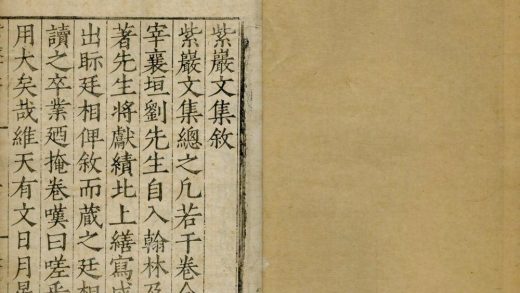 紫巖文集敘
紫巖文集總之凡若干卷今
宰襄垣劉先生自入翰林及
著先生將獻績北上繕寫成
出眎廷相俾敘而蔵之廷相
讀之卒業廼掩卷嘆曰嗟乎
用大矣哉維天有文日月星